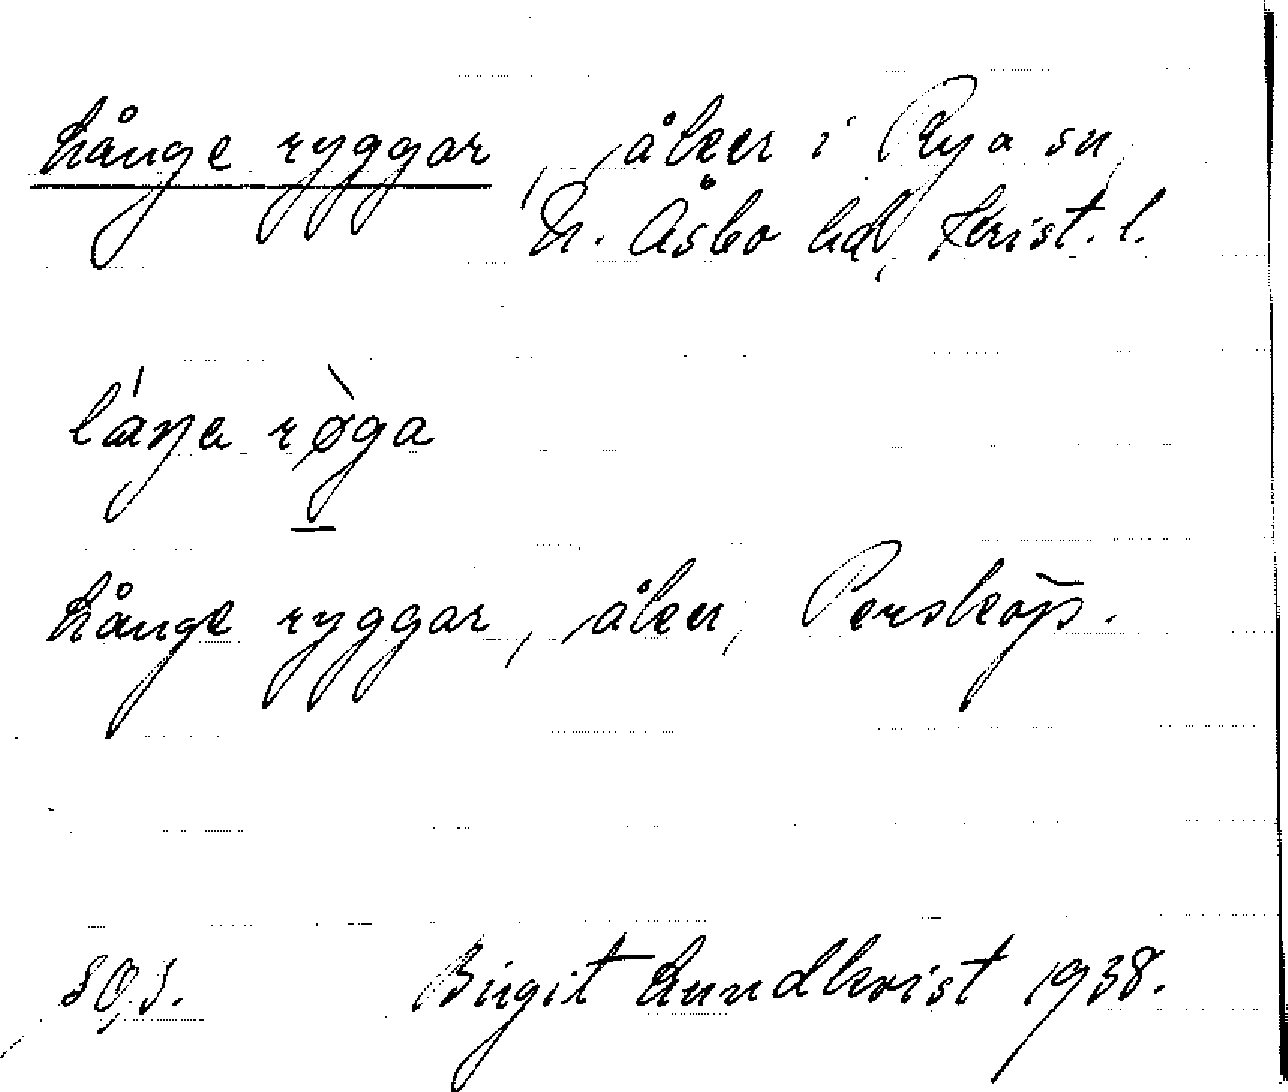 Långe ryggar, åker i Rya sn,
N. Åsbo hd, Krist. l.
låŋa rø̀ga
Långe ryggar, åker, Persköp.
Birgit Lundkvist 1938.